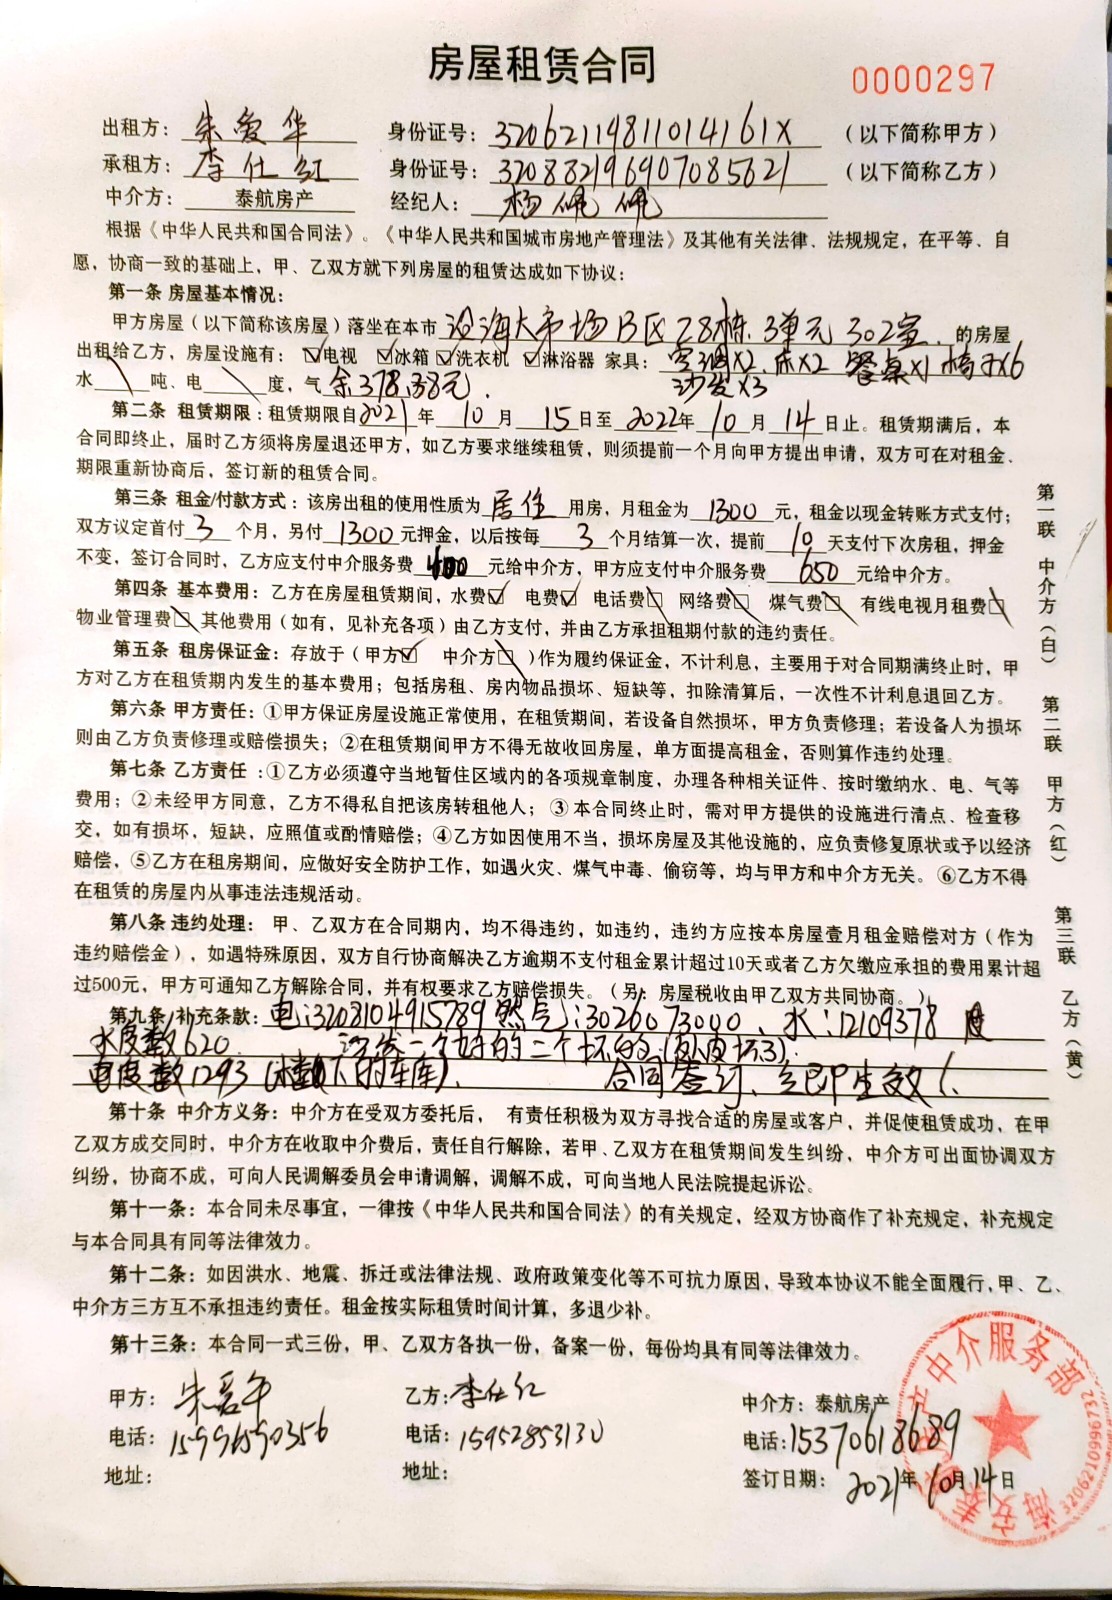 房屋租赁合同
0000297
出租方：朱爱华 身份证号：32062119811014161X （以下简称甲方）
承租方：李仕红 身份证号：320882196907085621 （以下简称乙方）
中介方：泰航房产 经纪人：杨佩佩
根据《中华人民共和国合同法》。《中华人民共和国城市房地产管理法》及其他有关法律、法规规定，在平等、自
愿，协商一致的基础上，甲、乙双方就下列房屋的租赁达成如下协议：
第一条 房屋基本情况：
甲方房屋（以下简称该房屋）落坐在本市 海大市场B区28栋.3单元 302室. 的房屋
出租给乙方，房屋设施有：☑电视 ☑冰箱☑洗衣机 ☑淋浴器 家具：空调x2.床x2 餐桌x1 椅子x6
水 吨、电 度，气余378.38元. 沙发x3
第二条 租赁期限：租赁期限自2021年 10 月 15日至 2022年 10 月 14 日止。租赁期满后，本
合同即终止，届时乙方须将房屋退还甲方，如乙方要求继续租赁，则须提前一个月向甲方提出申请，双方可在对租金、
期限重新协商后，签订新的租赁合同。
第三条 租金/付款方式：该房出租的使用性质为居住用房，月租金为 1300 元，租金以现金转账方式支付；
双方议定首付 3 个月，另付 1300元押金，以后按每 3 个月结算一次，提前 10 天支付下次房租，押金
不变，签订合同时，乙方应支付中介服务费 元给中介方，甲方应支付中介服务费 650 元给中介方。
第四条 基本费用：乙方在房屋租赁期间，水费☑ 电费☑ 电话费□ 网络费□ 煤气费□ 有线电视月租费□
物业管理费□ 其他费用（如有，见补充各项）由乙方支付，并由乙方承担租期付款的违约责任。
第五条 租房保证金：存放于（甲方☑ 中介方□ ）作为履约保证金，不计利息，主要用于对合同期满终止时，甲
方对乙方在租赁期内发生的基本费用；包括房租、房内物品损坏、短缺等，扣除清算后，一次性不计利息退回乙方。
第六条 甲方责任：①甲方保证房屋设施正常使用，在租赁期间，若设备自然损坏，甲方负责修理；若设备人为损坏
则由乙方负责修理或赔偿损失；②在租赁期间甲方不得无故收回房屋，单方面提高租金，否则算作违约处理。
第七条 乙方责任 ：①乙方必须遵守当地暂住区域内的各项规章制度，办理各种相关证件、按时缴纳水、电、气等
费用；②未经甲方同意，乙方不得私自把该房转租他人；③本合同终止时，需对甲方提供的设施进行清点、检查移
交，如有损坏，短缺，应照值或酌情赔偿；④乙方如因使用不当，损坏房屋及其他设施的，应负责修复原状或予以经济
赔偿，⑤乙方在租房期间，应做好安全防护工作，如遇火灾、煤气中毒、偷窃等，均与甲方和中介方无关。⑥乙方不得
在租赁的房屋内从事违法违规活动。
第八条 违约处理： 甲、乙双方在合同期内，均不得违约，如违约，违约方应按本房屋壹月租金赔偿对方（作为
违约赔偿金），如遇特殊原因，双方自行协商解决乙方逾期不支付租金累计超过10天或者乙方欠缴应承担的费用累计超
过500元，甲方可通知乙方解除合同，并有权要求乙方赔偿损失。（另：房屋税收由甲乙双方共同协商。）
第九条/补充条款：电:3208104915789 燃气:3026073000、水:12109378
水度数620. 沙发一个好的二个坏的(
电度数1293 ( 下的车库). 合同签订、立即生效!.
第十条 中介方义务：中介方在受双方委托后， 有责任积极为双方寻找合适的房屋或客户，并促使租赁成功，在甲
乙双方成交同时，中介方在收取中介费后，责任自行解除，若甲、乙双方在租赁期间发生纠纷，中介方可出面协调双方
纠纷，协商不成，可向人民调解委员会申请调解，调解不成，可向当地人民法院提起诉讼。
第十一条：本合同未尽事宜，一律按《中华人民共和国合同法》的有关规定，经双方协商作了补充规定，补充规定
与本合同具有同等法律效力。
第十二条：如因洪水、地震、拆迁或法律法规、政府政策变化等不可抗力原因，导致本协议不能全面履行，甲、乙、
中介方三方互不承担违约责任。租金按实际租赁时间计算，多退少补。
第十三条：本合同一式三份，甲、乙双方各执一份，备案一份，每份均具有同等法律效力。
甲方：朱爱华 乙方：李仕红 中介方：泰航房产
电话：15996590356 电话：15952853130 电话：15370618689
地址： 地址： 签订日期：2021年10月14日
第一联 中介方（白） 第二联 甲方（红） 第三联 乙方（黄）
产中介服务部
海安
3206210996732